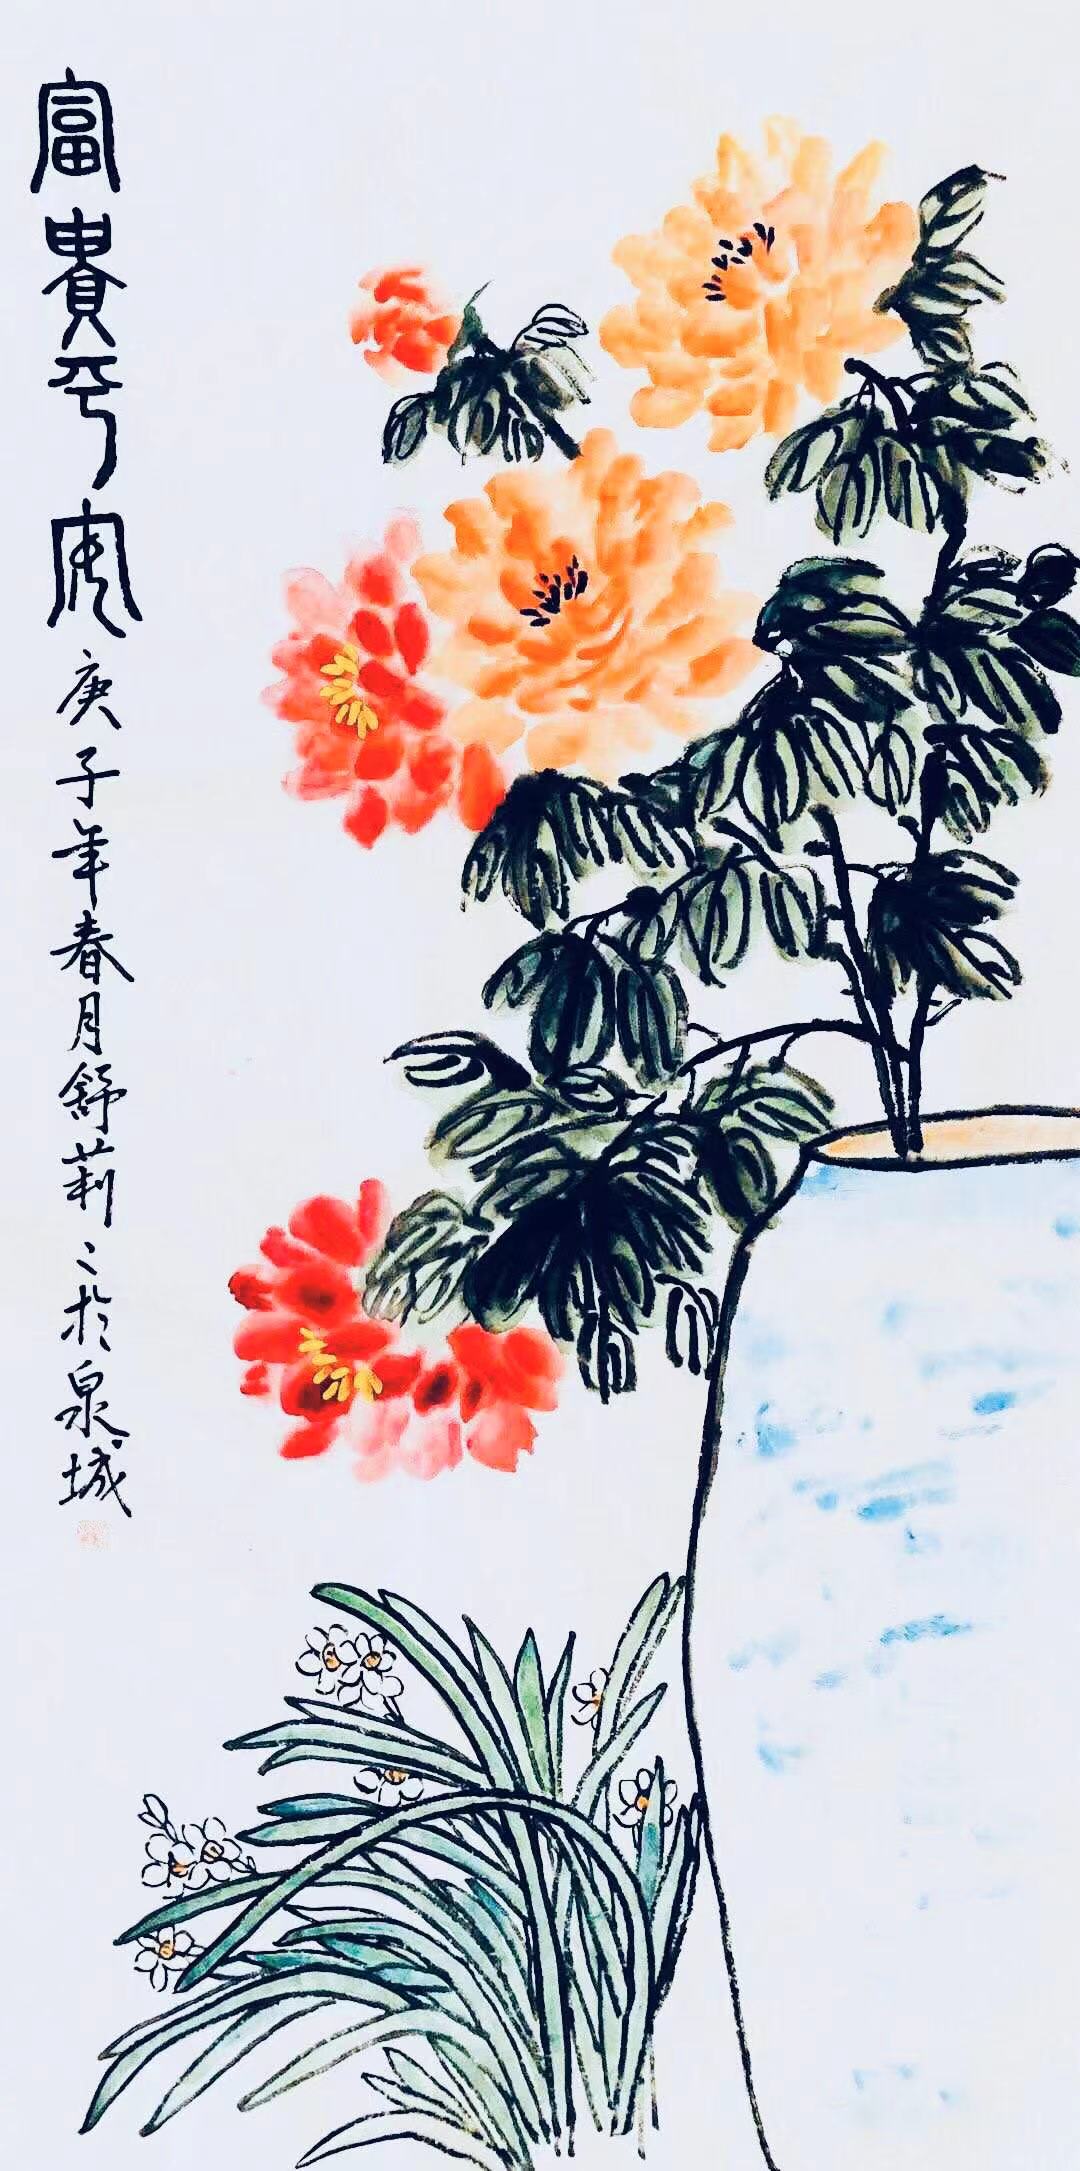 富貴平安庚子年春月舒莉〻於泉城